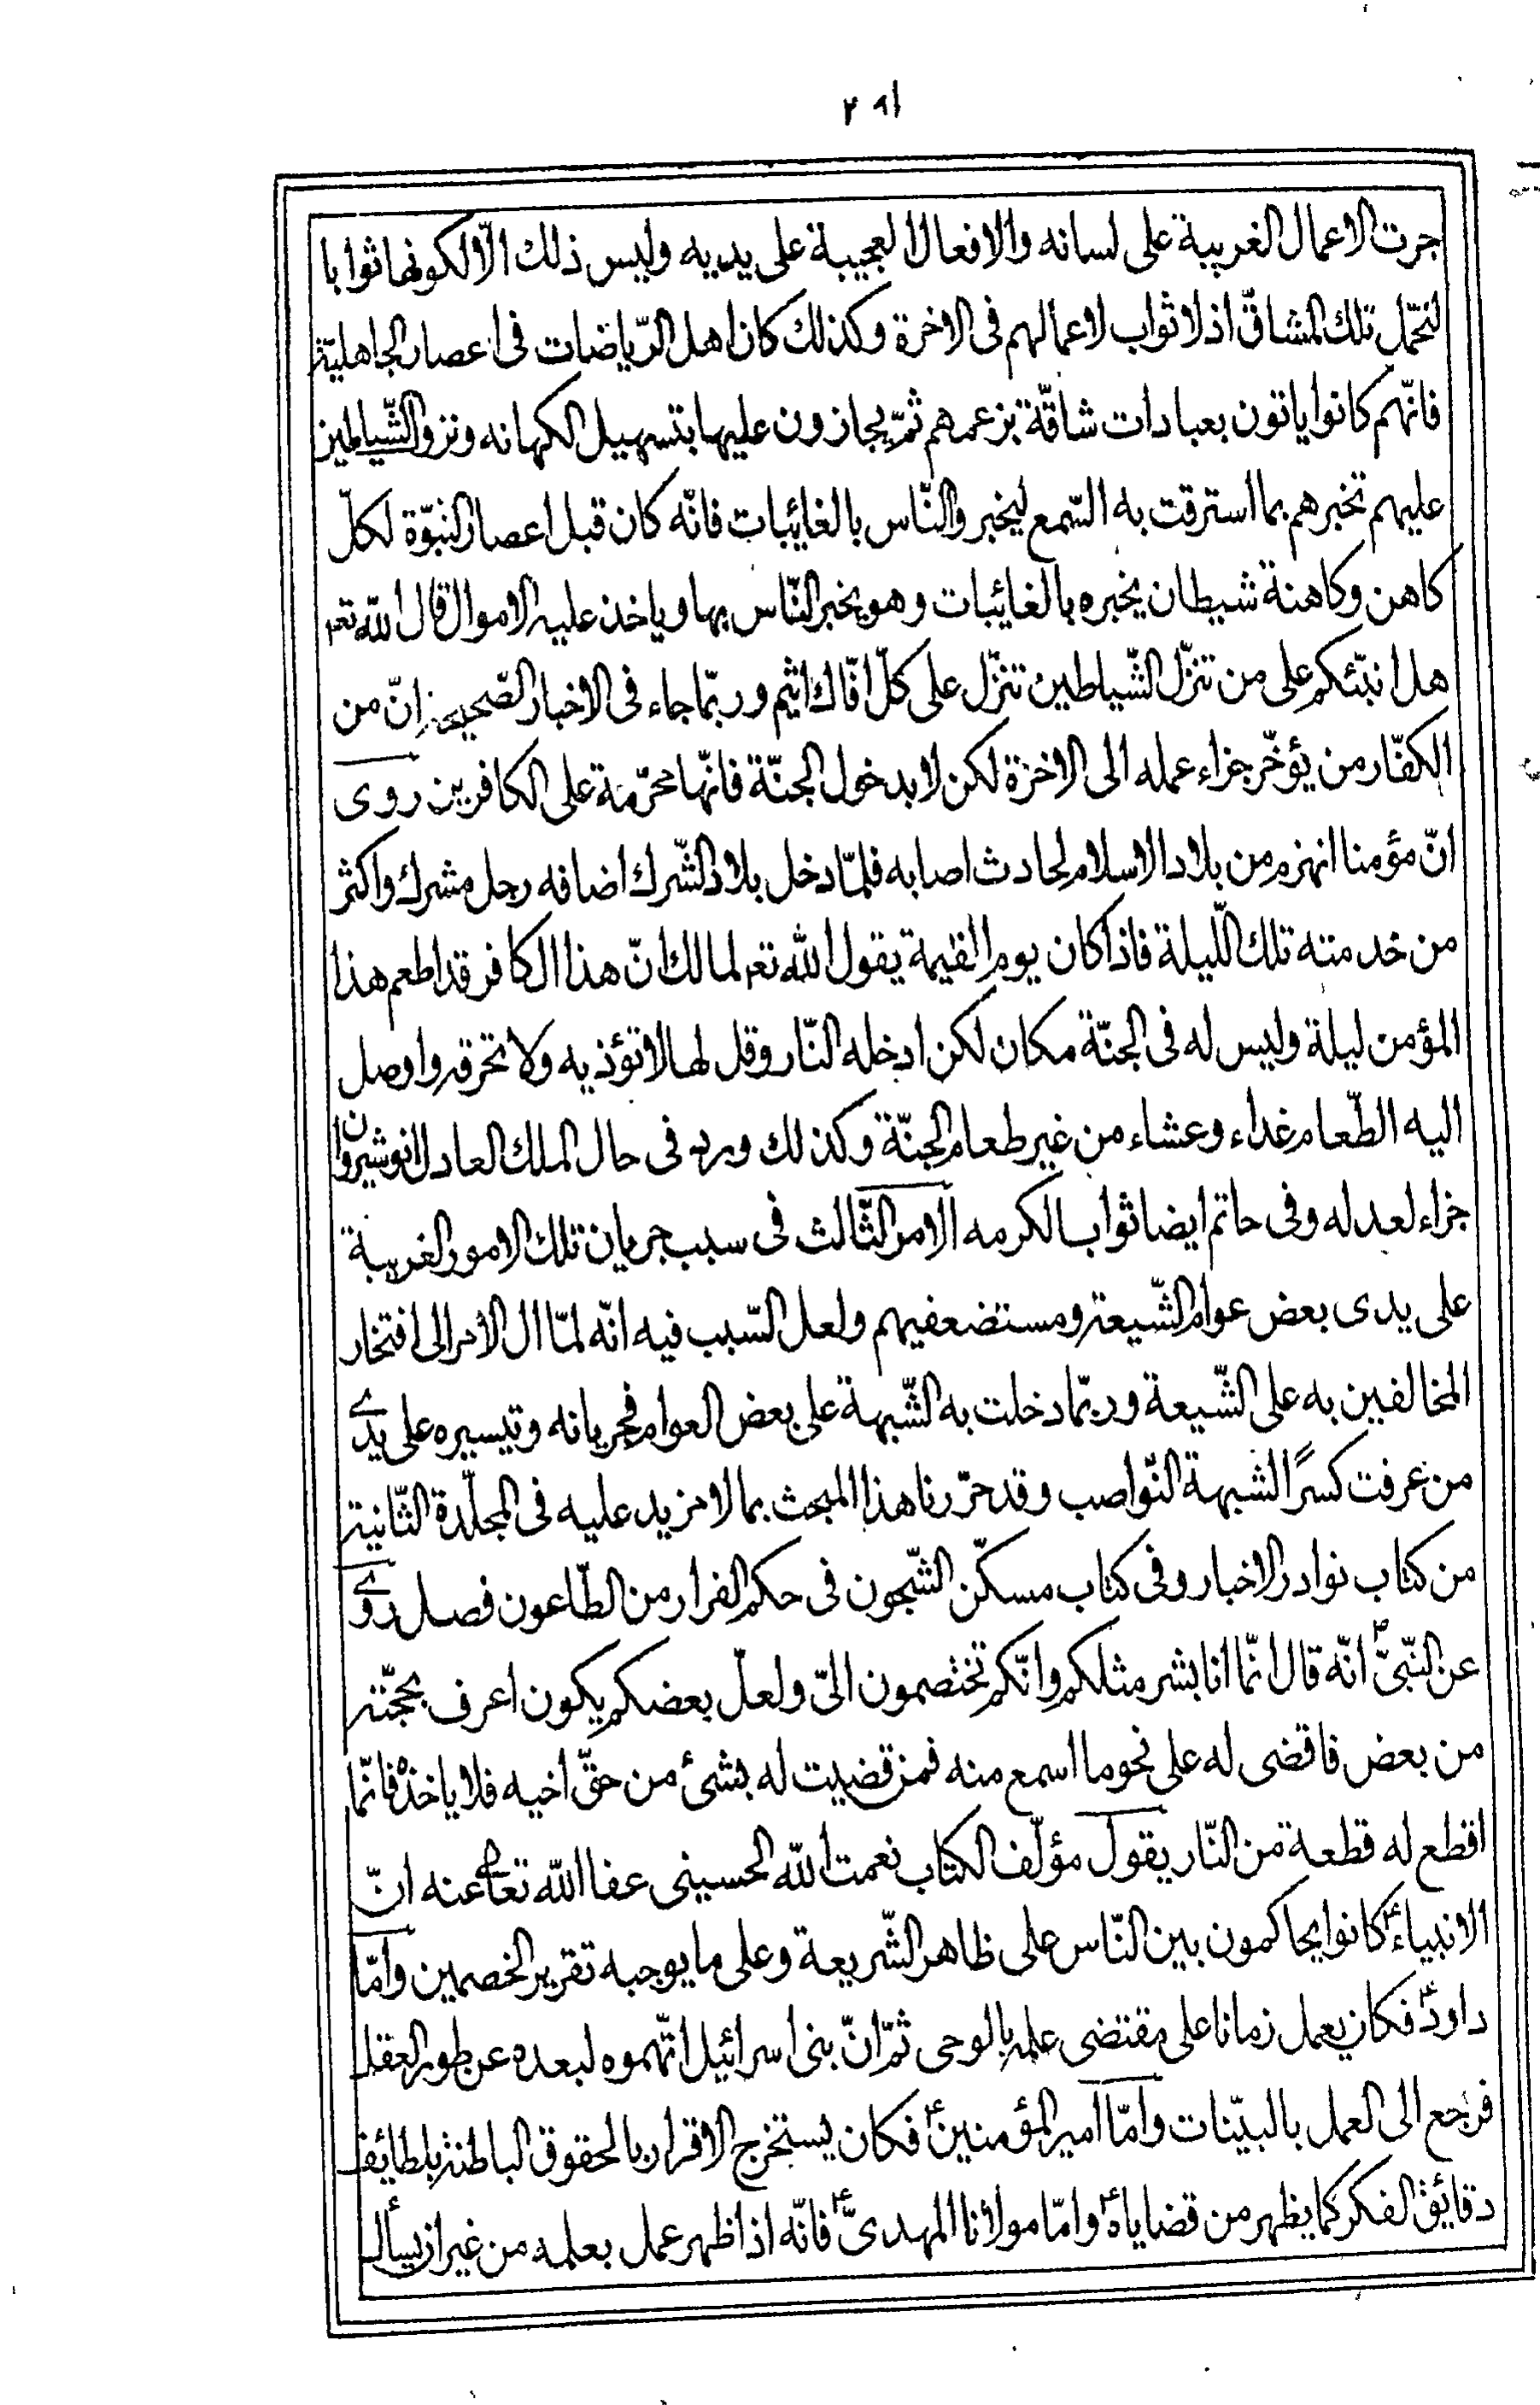 جرت الاعمال الغريبة على لسانه والافعال العجيبة على يديه وليس ذلك الّا لكونها ثوابا
لتحمّل تلك المشاقّ اذ لا ثواب لاعمالهم فى الاخرة وكذلك كان اهل الرّياضات فى اعصار الجاهليّة
فانّهم كانوا ياتون بعبادات شاقّة بزعمهم ثمّ يجازون عليها بتسهيل الكهانه ونزو الشّياطين
عليهم تخبرهم بما استرقت به السّمع ليخبر والنّاس بالغائبات فانّه كان قبل اعصار النبوّة لكلّ
كاهن وكاهنة شيطان يخبره بالغائبات وهو يخبر النّاس بها وياخذ عليه الاموال قال اللّه تعم
هل انبّئكم على من تنزّل الشّياطين تنزّل على كلّ افّاك اثيم وربّما جاء فى الاخبار الصّحيحة انّ من
الكفّار من يؤخّر جزاء عمله الى الاخرة لكن لا بدخول الجنّة فانّها محرّمة على الكافرين روى
انّ مؤمنا انهزم من بلاد الاسلام لحادث اصابه فلمّا دخل بلاد الشّرك اضافه رجل مشرك واكثر
من خدمته تلك اللّيلة فاذا كان يوم القيمة يقول اللّه تعم لمالك انّ هذا الكافر قد اطعم هذا
المؤمن ليلة وليس له فى الجنّة مكان لكن ادخله النّار وقل لها لا تؤذيه ولا تحرقه واوصل
اليه الطّعام غداء وعشاء من غير طعام الجنّة وكذلك ورد فى حال الملك العادل انوشيروان
جزاء لعدله وفى حاتم ايضا ثوابا لكرمه الامر الثّالث فى سبب جريان تلك الامور الغريبة
على يدى بعض عوام الشّيعة ومستضعفيهم ولعل السّبب فيه انّه لمّا ال الأمر الى افتخار
المخالفين به على الشّيعة وربّما دخلت به الشّبهة على بعض العوام فجريانه وتيسيره على يدى
من عرفت كسرًا لشبهة النّواصب وقد حرّرنا هذا المبحث بما لا مزيد عليه فى المجلّدة الثّانية
من كتاب نوادر الاخبار وفى كتاب مسكّن الشّجون فى حكم الفرار من الطّاعون فصل روى
عن النّبىّ ص انّه قال انّما انا بشر مثلكم وانّكم تختصمون الىّ ولعلّ بعضكم يكون اعرف بحجّته
من بعض فاقضى له على نحو ما اسمع منه فمن قضيت له بشئ من حقّ اخيه فلا ياخذه فانّما
اقطع له قطعة من النّار يقول مؤلّف الكتاب نعمت اللّه الحسينى عفا اللّه تعالى عنه انّ
الانبياء ع كانوا يحاكمون بين النّاس على ظاهر الشّريعة وعلى ما يوجبه تقرير الخصمين وامّا
داود ع فكان يعمل زمانا على مقتضى علمه بالوحى ثمّ انّ بنى اسرائيل اتّهموه لبعده عن طور العقل
فرجع الى العمل بالبيّنات وامّا امير المؤمنين ع فكان يستخرج الاقرار بالحقوق الباطنة بلطائف
دقائق الفكر كما يظهر من قضاياه ع وامّا مولانا المهدىّ ع فانّه اذا ظهر عمل بعلمه من غير ان يسأل